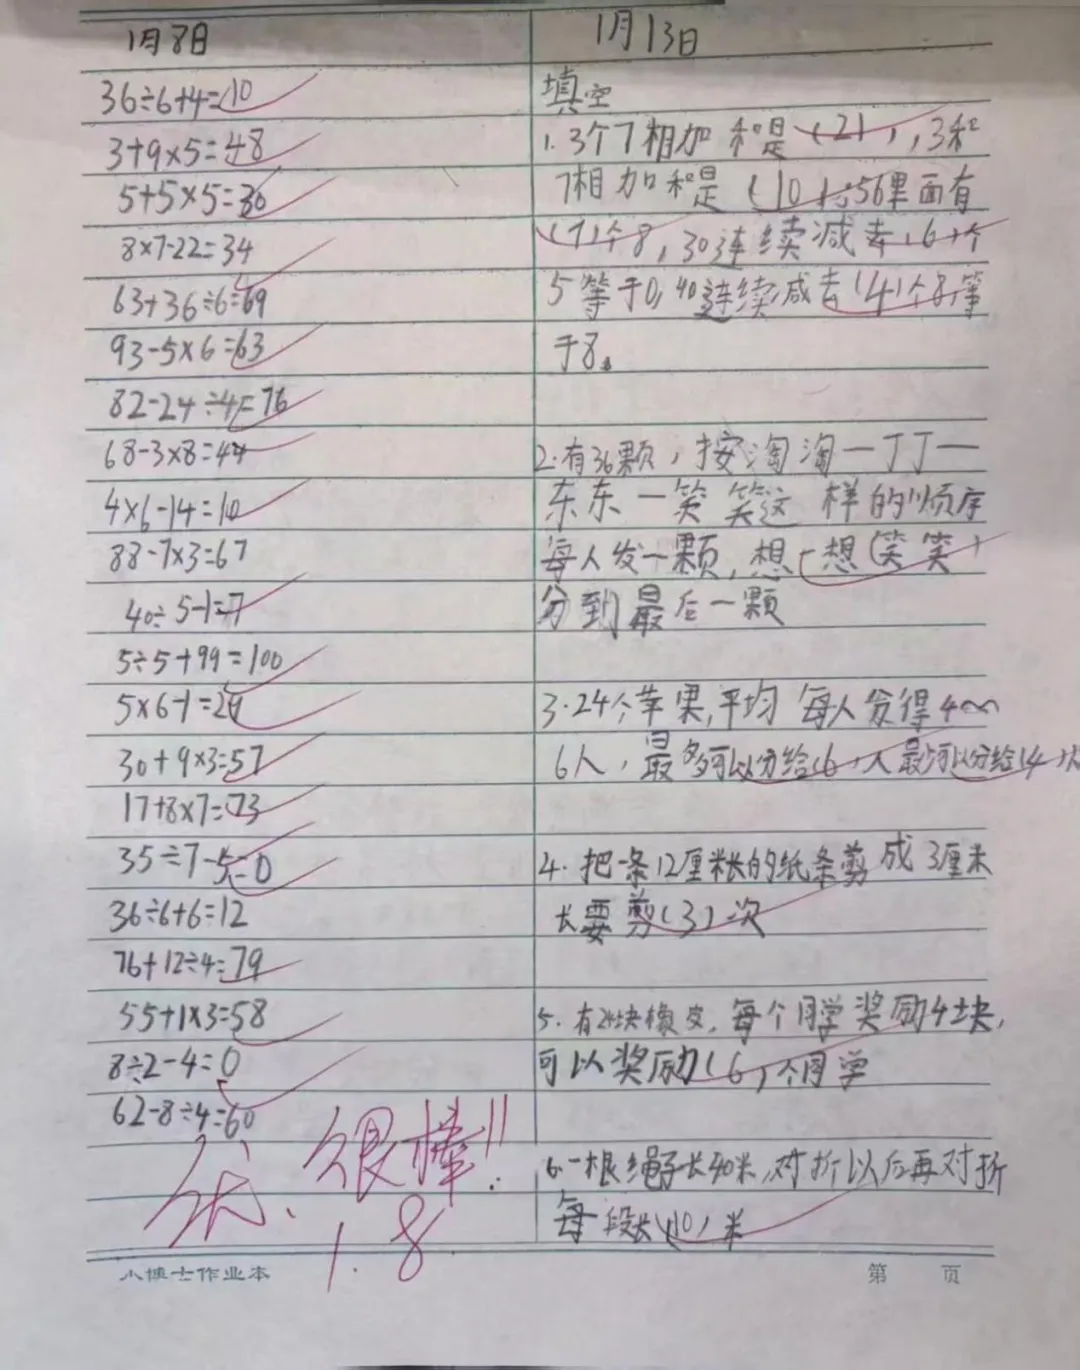 1月8日
36÷6+4=10
3+9×5=48
5+5×5=30
8×7-22=34
63+36÷6=69
93-5×6=63
82-24÷4=76
68-3×8=44
4×6-14=10
88-7×3=67
40÷5-1=7
5÷5+99=100
5×6-1=29
30+9×3=57
17+8×7=73
35÷7-5=0
36÷6+6=12
76+12÷4=79
55+1×3=58
8÷2-4=0
62-8÷4=60
优、很棒!!
1.8
小博士作业本
1月13日
填空
1.3个7相加和是(21),3和
7相加和是(10);56里面有
(7)个8,30连续减去(6)个
5等于0,40连续减去(4)个8等
于8。
2.有36颗,按淘淘一丁丁一
东东一笑笑这样的顺序
每人发一颗,想一想(笑笑)
分到最后一颗
3.24个苹果,平均每人分得4~
6人,最多可以分给(6)人最少可以分给(4)次
4.把一条12厘米长的纸条剪成3厘米
长要剪(3)次
5.有24块橡皮,每个同学奖励4块,
可以奖励(6)个同学
6.一根绳子长40米,对折以后再对折
每段长(10)米
第 页